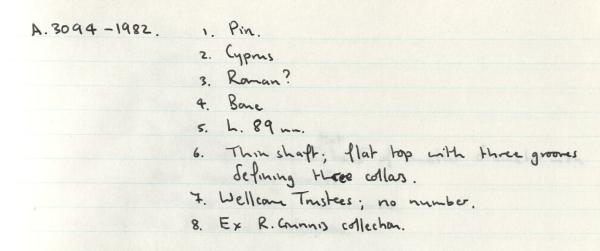 A.3094-1982. 1. Pin.
2. Cyprus
3. Roman?
4. Bone
5. L. 89 mm.
6. Thin shaft; flat top with three grooves
defining three collars.
7. Wellcome Trustees; no number.
8. Ex R. Gunnis collection.